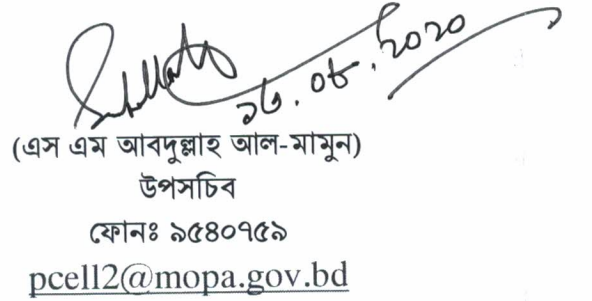 ১৩.০৮.২০২০
(এস এম আবদুল্লাহ আল-মামুন)
উপসচিব
ফোনঃ ৯৫৪০৭৫৯
pcell2@mopa.gov.bd